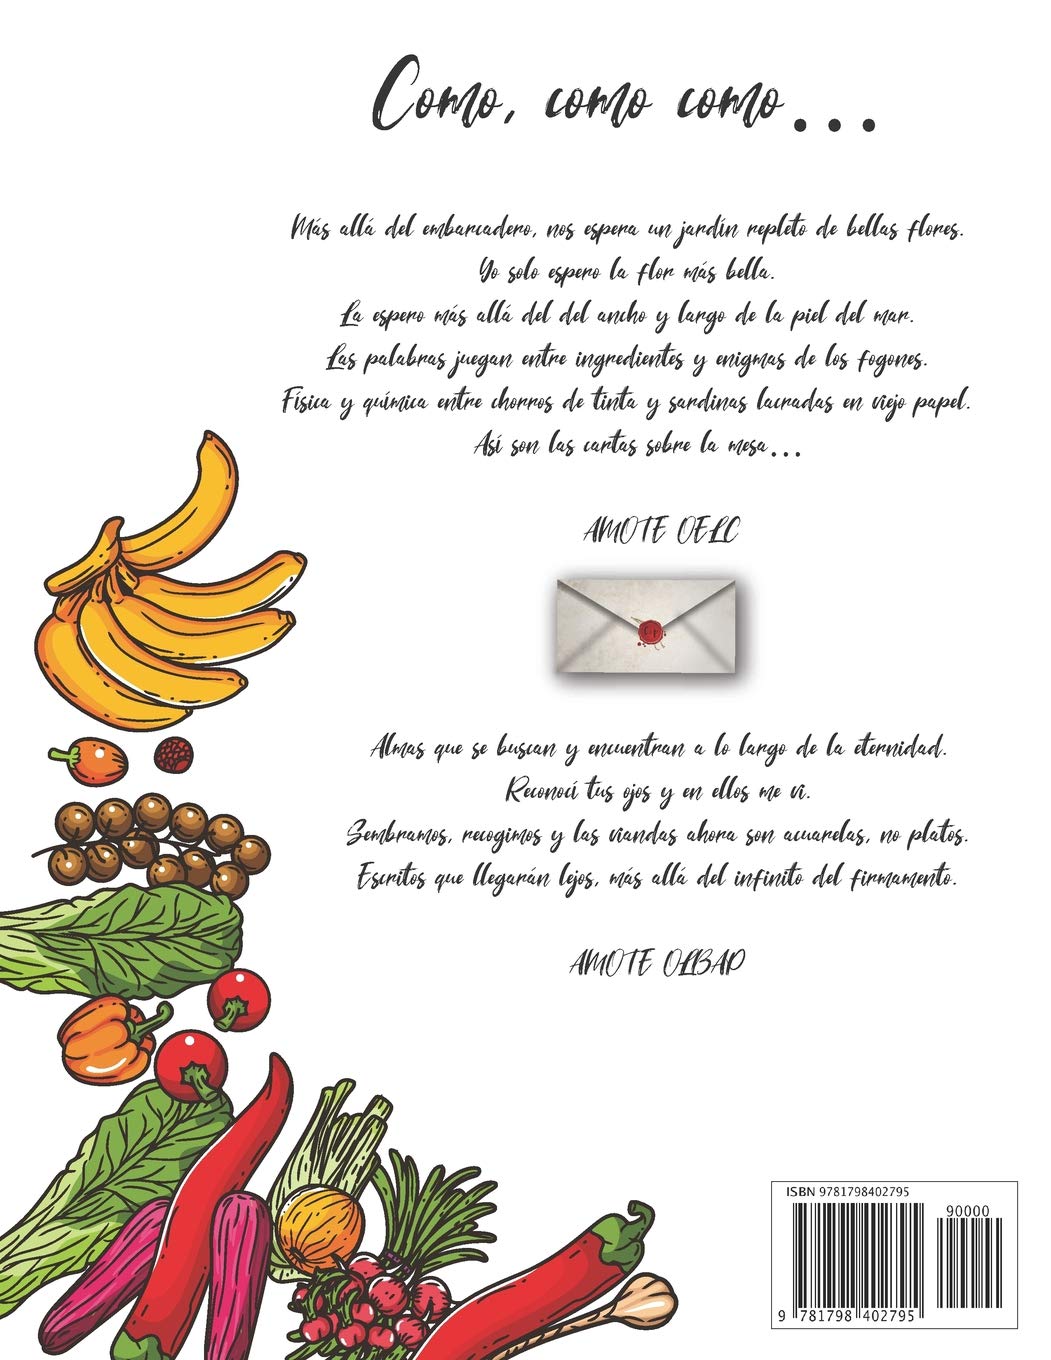 Como, como como...
Más allá del embarcadero, nos espera un jardín repleto de bellas flores.
Yo solo espero la flor más bella.
La espero más allá del del ancho y largo de la piel del mar.
Las palabras juegan entre ingredientes y enigmas de los fogones.
Física y química entre chorros de tinta y sardinas lacradas en viejo papel.
Así son las cartas sobre la mesa...
AMOTE OELC
Almas que se buscan y encuentran a lo largo de la eternidad.
Reconocí tus ojos y en ellos me vi.
Sembramos, recogimos y las viandas ahora son acuarelas, no platos.
Escritos que llegarán lejos, más allá del infinito del firmamento.
AMOTE OLBAP
ISBN 9781798402795
90000
9 781798 402795